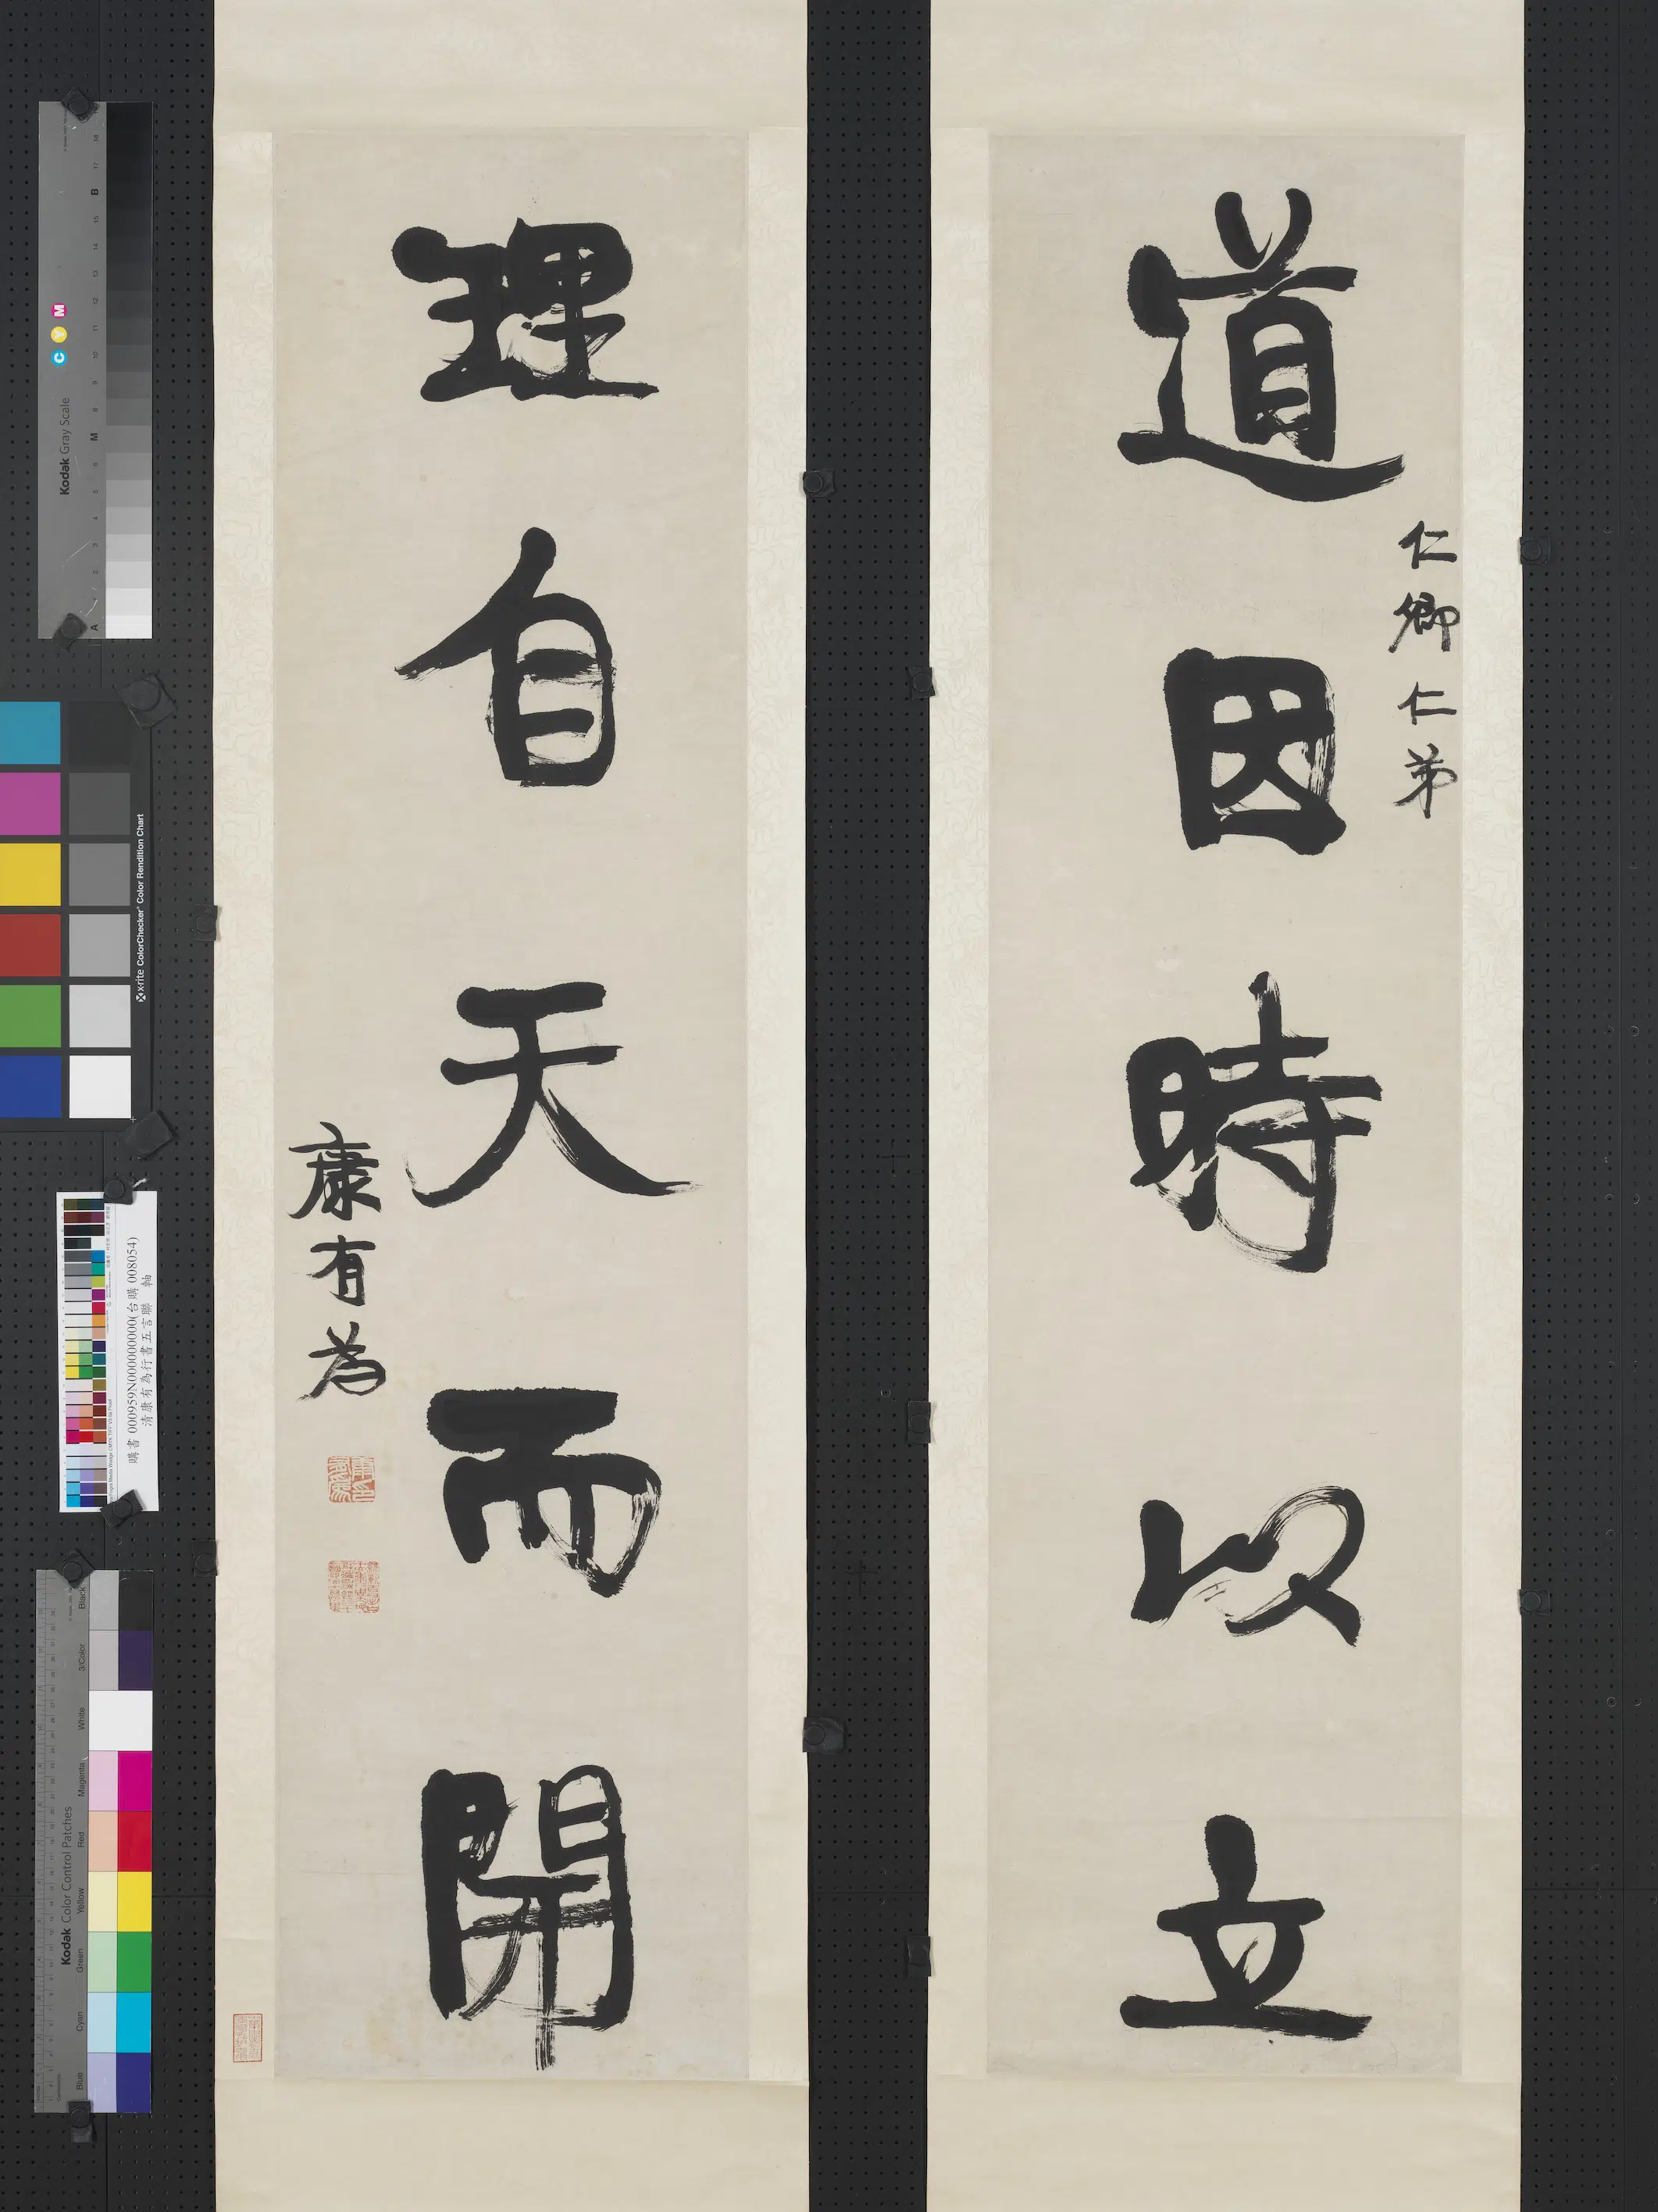 道因時以立
仁卿仁弟
理自天而開
康有為
購書 000959N000000000(台購 008054)
清康有為行書五言聯 軸
Kodak Gray Scale
C Y M
A 1 2 3 4 5 6 M 8 9 10 11 12 13 14 15 B 17 18
x-rite ColorChecker Color Rendition Chart
Kodak Color Control Patches
Blue Cyan Green Yellow Red Magenta White 3/Color Black